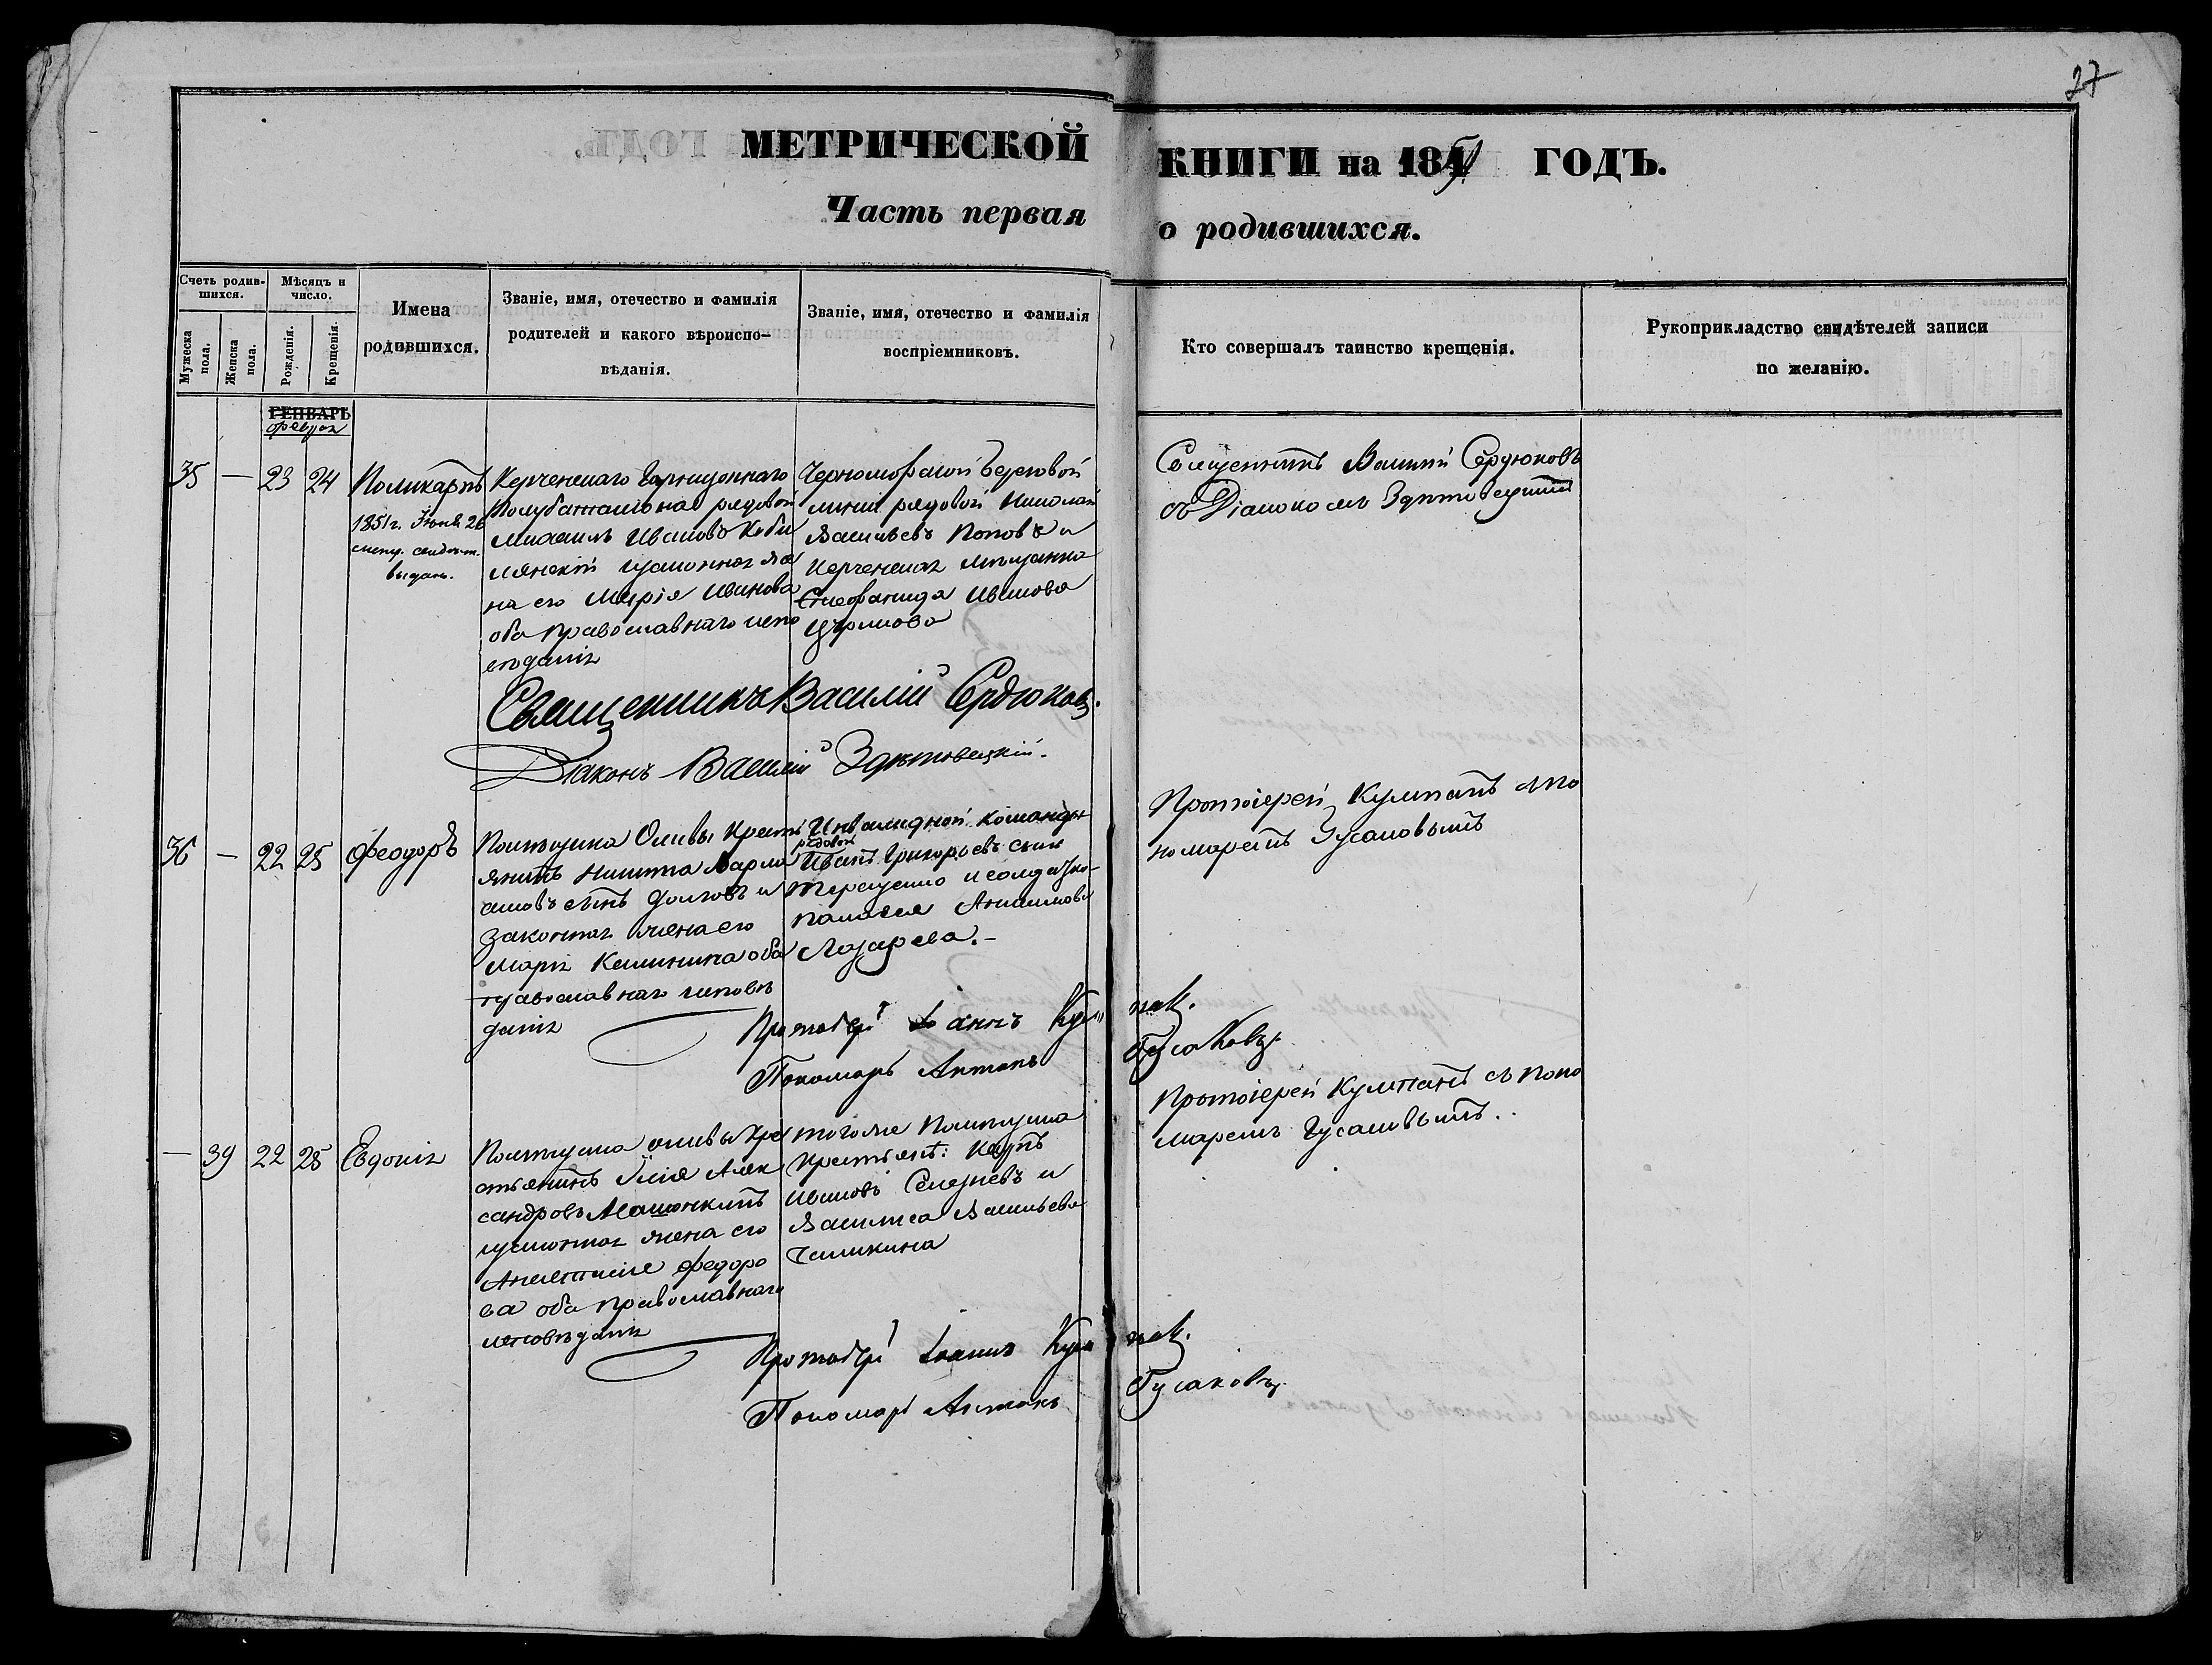 27
МЕТРИЧЕСКОЙ КНИГИ на 1851 ГОДЪ.
Часть первая о родившихся.
Счетъ родив-
шихся.
Мужеска
пола.
Женска
пола.
Мѣсяцъ и
число.
Рожденія.
Крещенія.
Имена
родившихся.
Званіе, имя, отечество и фамилія
родителей и какого вѣроиспо-
вѣданія.
Званіе, имя, отечество и фамилія
воспріемниковъ.
Кто совершалъ таинство крещенія.
Рукоприкладство свидѣтелей записи
по желанію.
ГЕНВАРЬ
35 — 23 24
Поликарпъ
1851 г. Іюня 26
выдано.
Керченскаго Гарнизоннаго
Полубаталіона рядовой
Михаилъ Ивановъ
законная же
на его Марія Иванова
оба православнаго испо
вѣданія
Черноморской береговой
линіи рядовой Николай
Васильевъ Поповъ и
Керченская мѣщанка
Стефанида Иванова
Священникъ Василій Сердюковъ
съ Діакономъ
Священникъ Василій Сердюковъ.
Діаконъ Василій
36 — 22 25
Феодоръ
Помѣщика Оливы Крестъ
янинъ Никита
сынъ и
законная жена его
Марія оба
православнаго исповѣ
данія
Инвалидной команды
рядовой
Иванъ Григорьевъ сынъ
Терещенко и солдатка
Лазарева.-
Протоіерей Кулпакъ съ По
номаремъ Гусаковымъ
Протоіерей Іоаннъ Кулпак.
Пономарь Антонъ Гусаковъ.
— 39 22 25
Евдокія
Помѣщика Оливы Кре
стьянинъ Илія Алек
сандровъ
законная жена его
Анастасія Федоро
ва оба православнаго
исповѣданія
тогоже Помѣщика
Крестьяне: Карпъ
Ивановъ Селезневъ и
Василиса Васильева
Протоіерей Кулпакъ съ Поно
маремъ Гусаковымъ..
Протоіерей Іоаннъ Кулпак.
Пономарь Антонъ Гусаковъ.